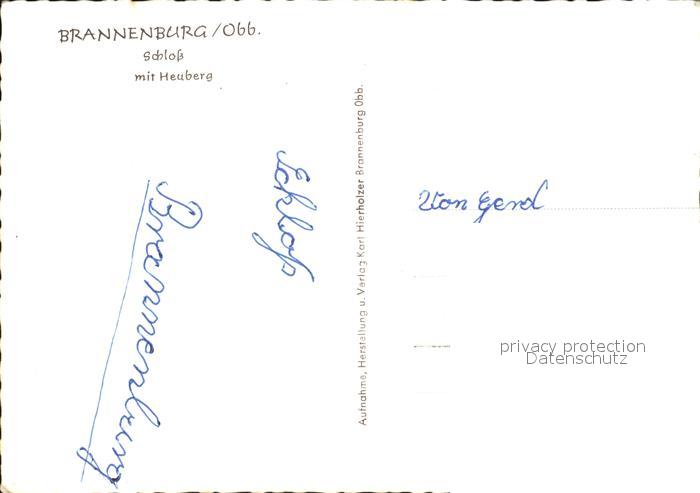 BRANNENBURG/Obb.
Schloß
mit Heuberg
Schloß
Brannenburg
Aufnahme, Herstellung u. Verlag Karl Hierholzer Brannenburg Obb.
Von Gerd
privacy protection
Datenschutz